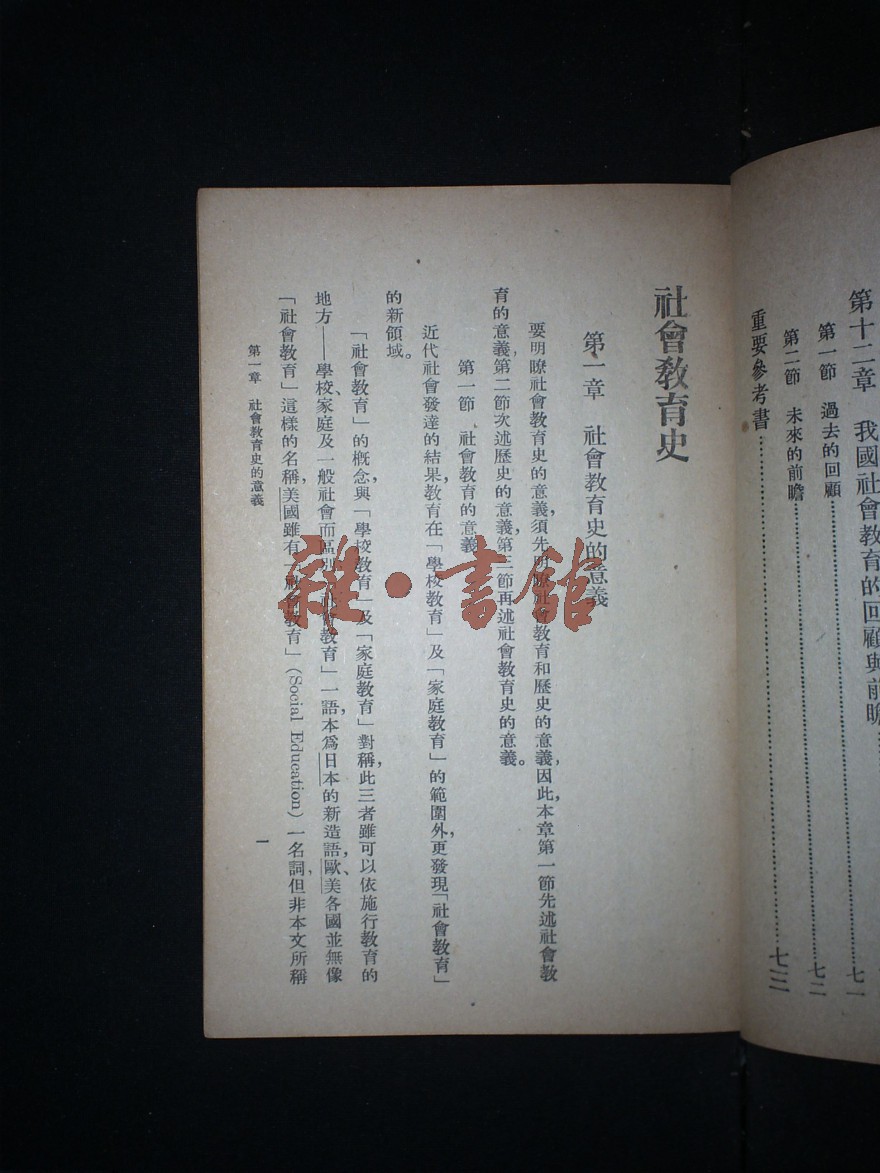 第十二章　我國社會教育的回顧與前瞻
第一節　過去的回顧……七一
第二節　未來的前瞻……七二
重要參考書……七三
社會教育史
第一章　社會教育史的意義
要明瞭社會教育史的意義，須先明瞭社會教育和歷史的意義，因此，本章第一節先述社會教
育的意義，第二節次述歷史的意義，第三節再述社會教育史的意義。
第一節　社會教育的意義
近代社會發達的結果，教育在「學校教育」及「家庭教育」的範圍外，更發現「社會教育」
的新領域。
「社會教育」的概念與「學校教育」及「家庭教育」對稱，此三者雖可以依施行教育的
地方——學校、家庭及一般社會而區別，「社會教育」一語，本為日本的新造語，歐、美各國並無像
「社會教育」這樣的名稱，美國雖有「社會教育」（Social Education）一名詞，但非本文所稱
第一章　社會教育史的意義
一
雜·書館